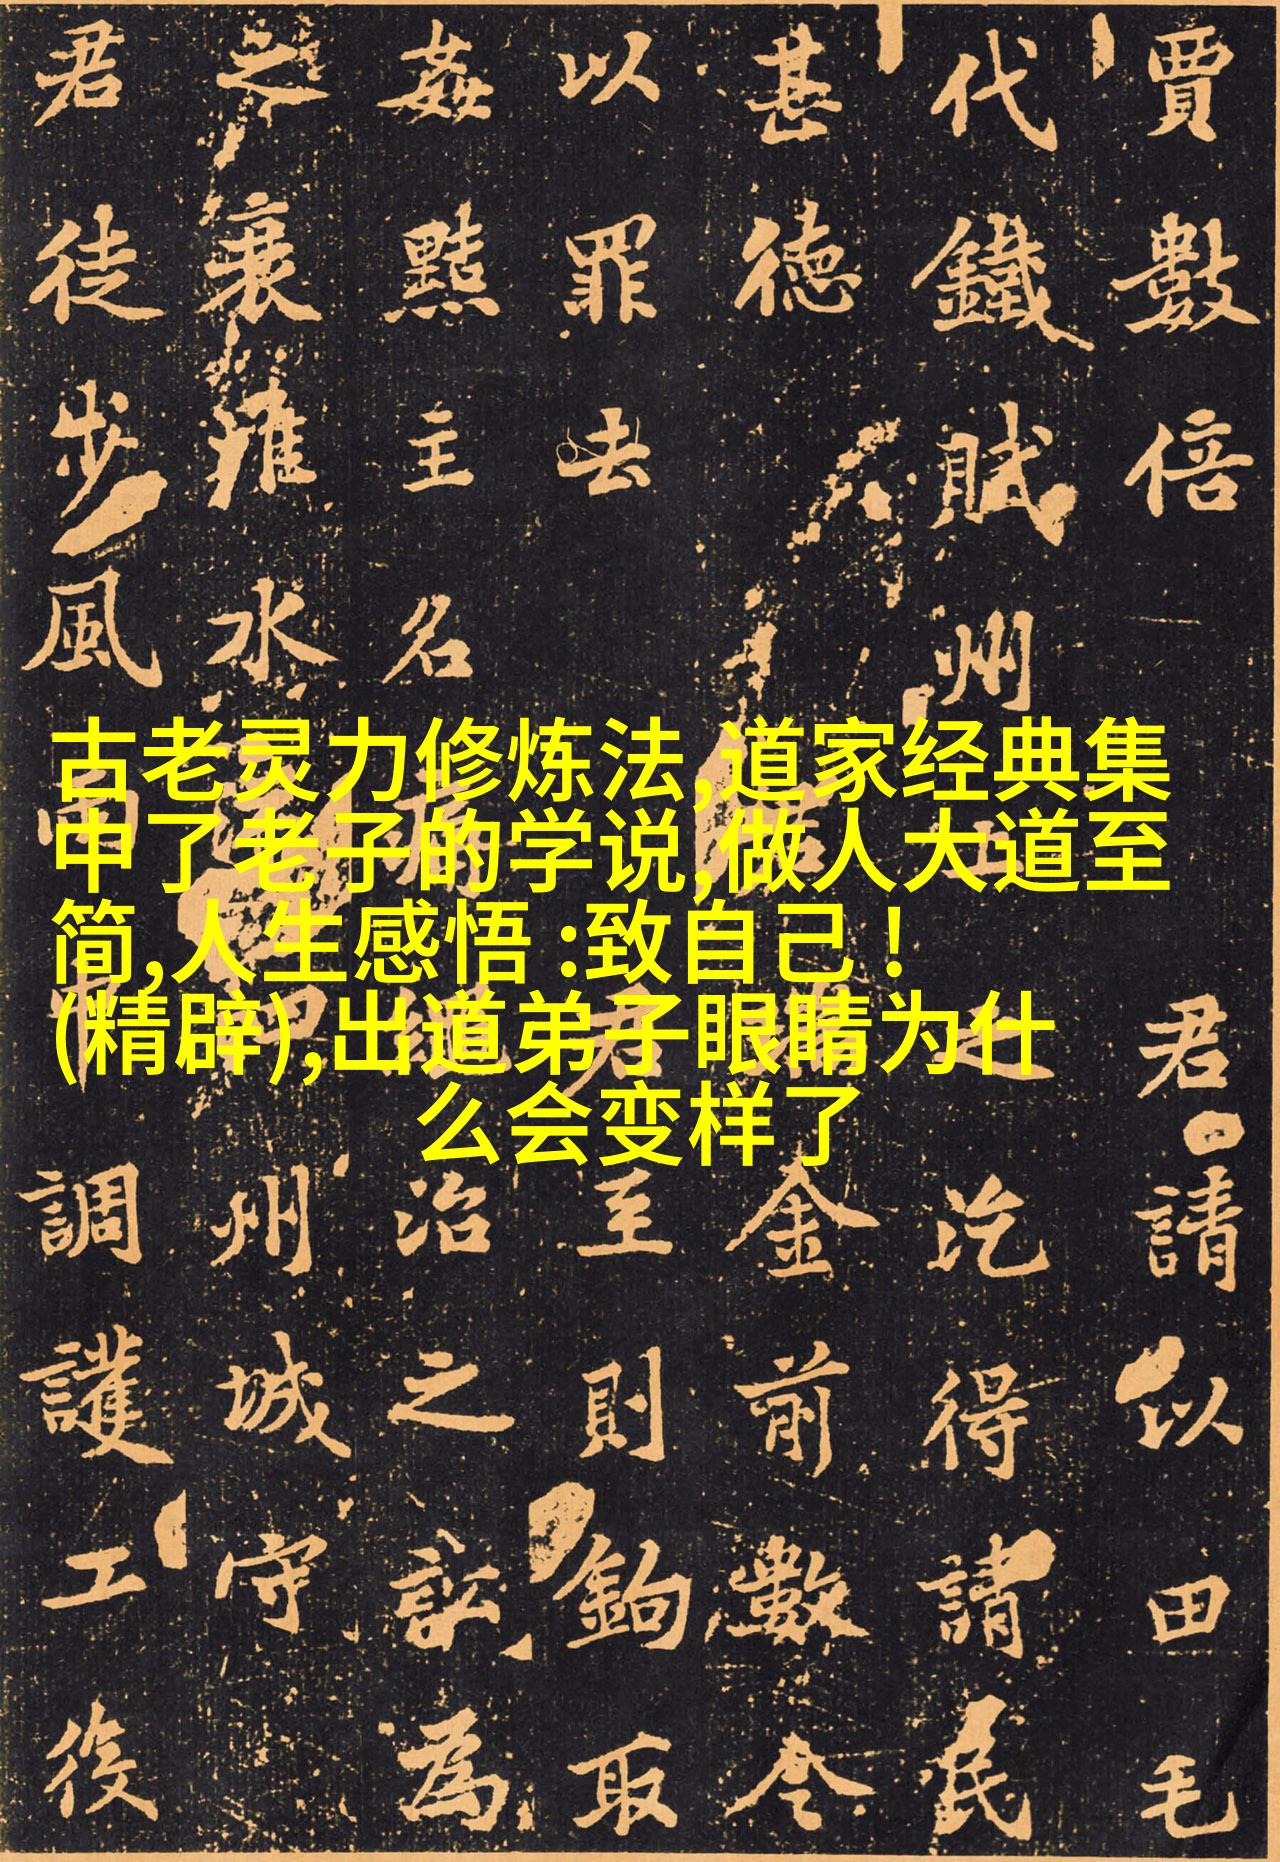 古老灵力修炼法,道家经典集
中了老子的学说,做人大道至
简,人生感悟 :致自己！
(精辟),出道弟子眼睛为什
么会变样了
賈數倍君請以田毛
代鐵賦州之汔得請民
甚德金前數令
以罪去君至則鉤取
姦黠主名治之訟為
之衰水州城守
君徒步風雨調護工役